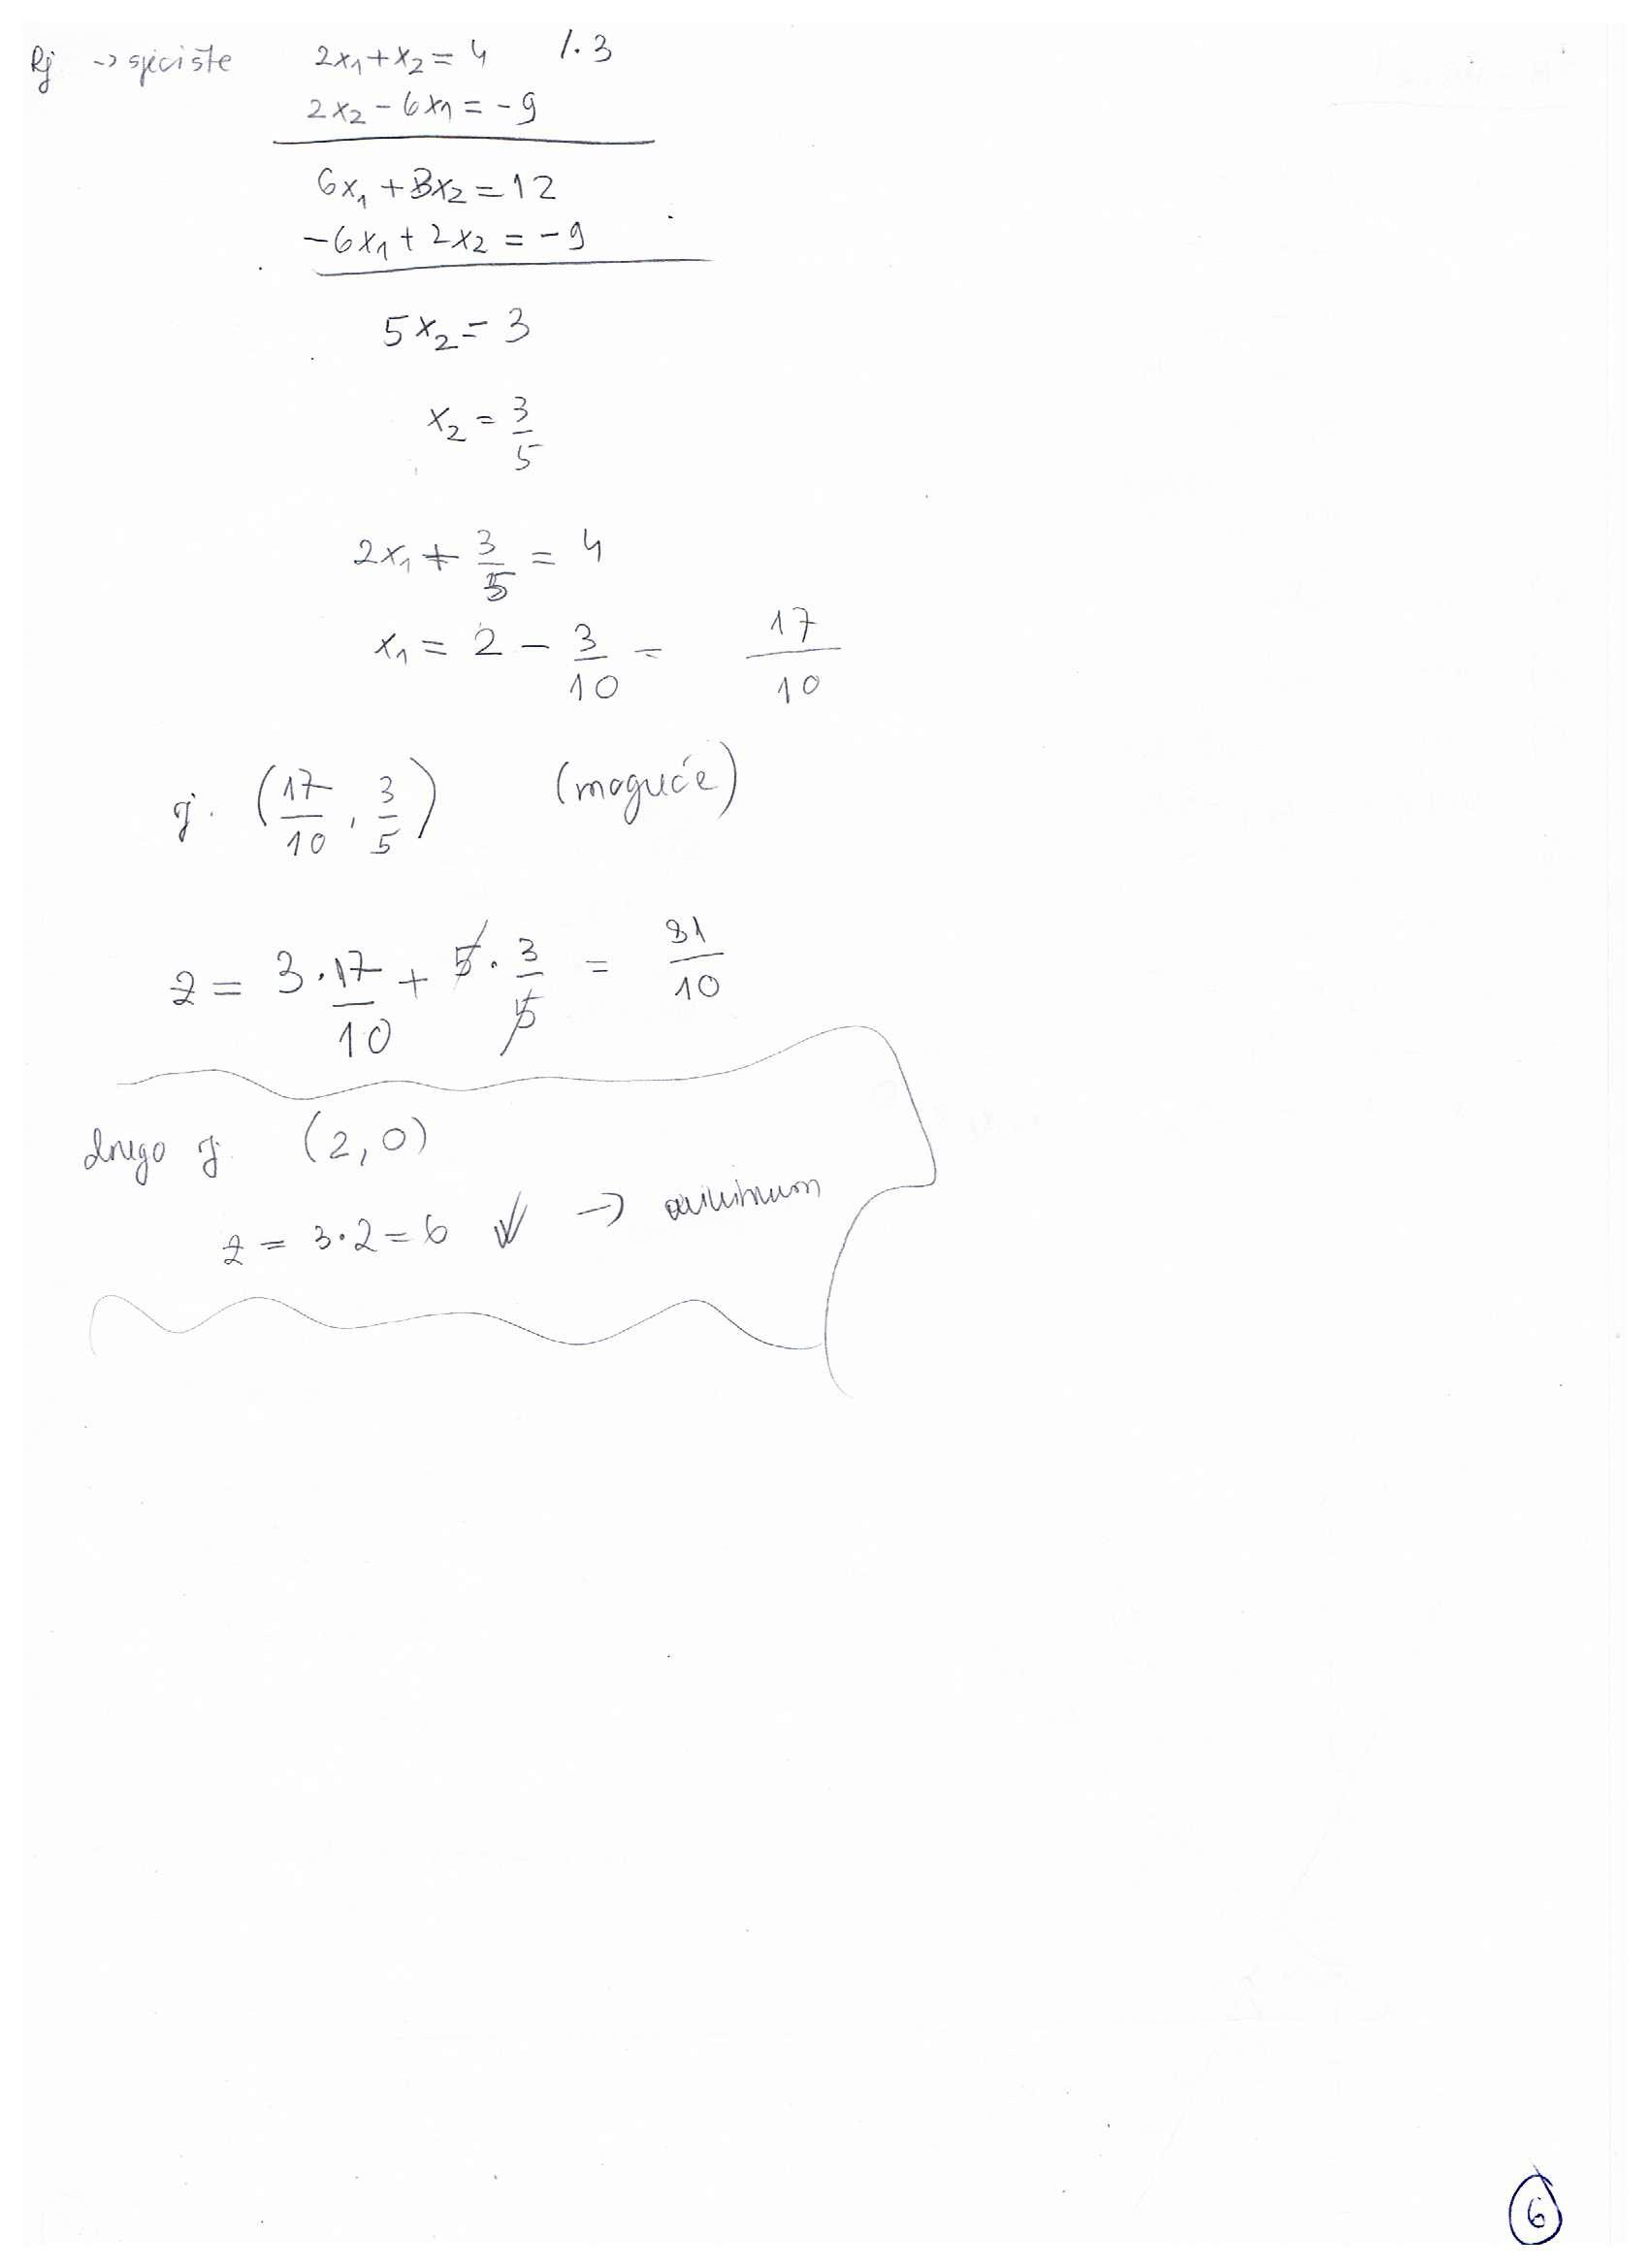 Rj → sjecište 2x₁+x₂=4 /·3
2x₂-6x₁=-9
6x₁+3x₂=12
-6x₁+2x₂=-9
5x₂=3
x₂=3/5
2x₁+3/5=4
x₁=2-3/10=17/10
rj. (17/10, 3/5) (moguće)
z=3·17/10+5·3/5=81/10
drugo rj. (2,0)
z=3·2=6 ✓ → minimum
6